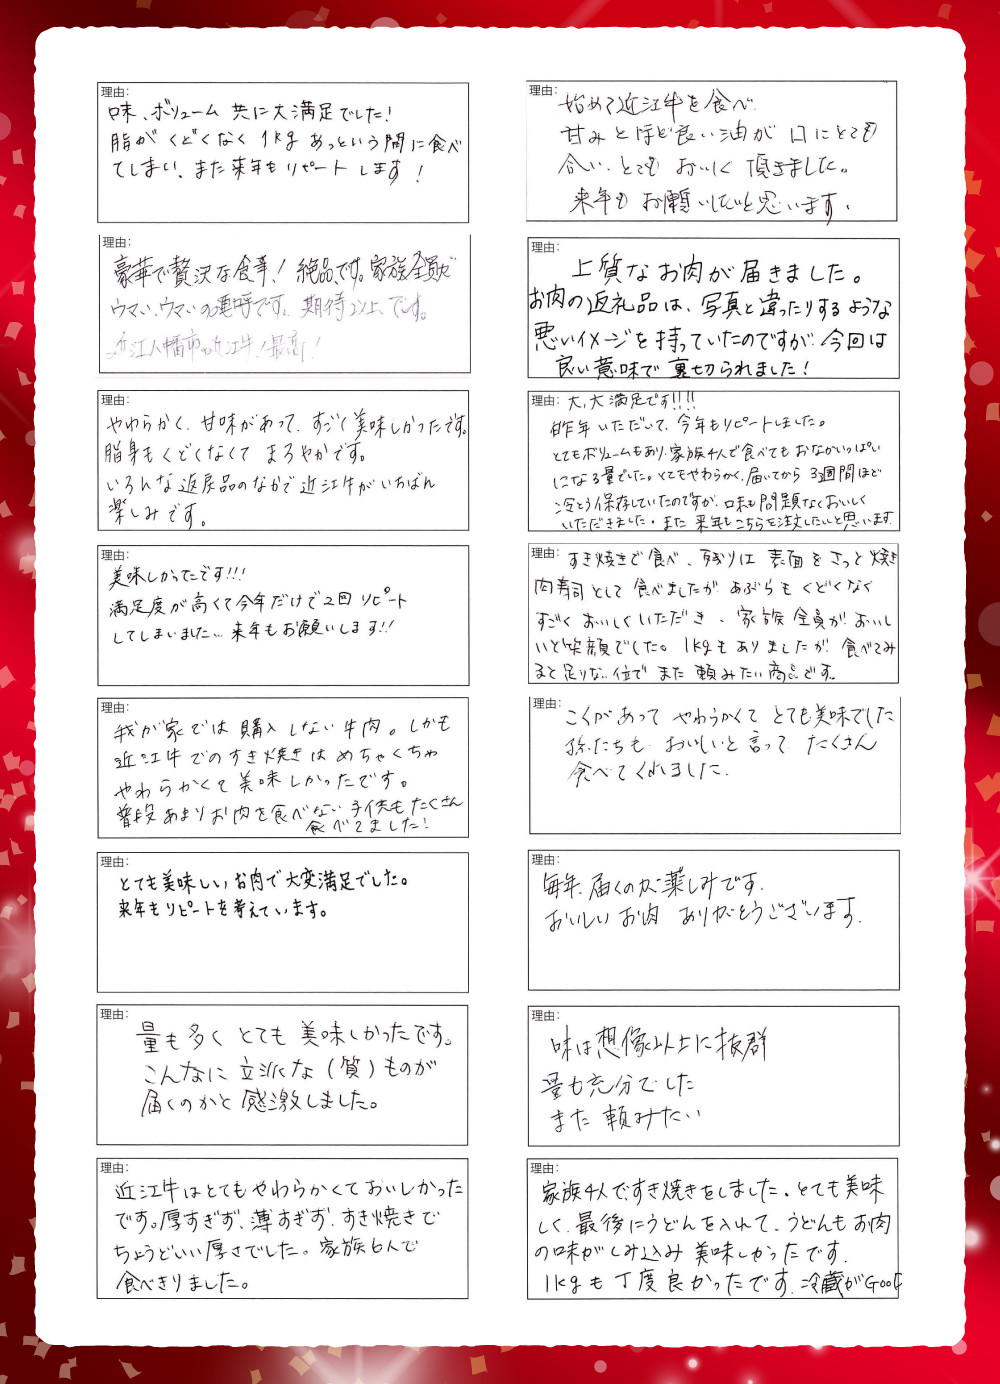 理由:
味、ボリューム 共に大満足でした!
脂が くどくなく 1kg あっという間に食べ
てしまい、また来年もリピート します!
理由:
豪華で贅沢な食事! 絶品です。家族全員で
ウマい、ウマいの連呼です。期待以上です。
近江八幡市の近江牛!最高!
理由:
やわらかく、甘味があって、すごく美味しかったです。
脂身もくどくなくて まろやかです。
いろんな返戻品のなかで近江牛がいちばん
楽しみです。
理由:
美味しかったです!!!
満足度が高くて今年だけで2回リピート
してしまいました… 来年もお願いします!!
理由:
我が家では購入しない牛肉。しかも
近江牛でのすき焼きはめちゃくちゃ
やわらかくて美味しかったです。
普段あまりお肉を食べない子供もたくさん
食べてました!
理由:
とても美味しいお肉で大変満足でした。
来年もリピートを考えています。
理由:
量も多く とても 美味しかったです。
こんなに立派な(質)ものが
届くのかと感激しました。
理由:
近江牛はとてもやわらかくておいしかった
です。厚すぎず、薄すぎず、すき焼きで
ちょうどいい厚さでした。家族6人で
食べきりました。
理由:
始めて近江牛を食べ
甘みとほど良い油が 口にとても
合い、とても おいしく 頂きました。
来年も お願いしたいと思います。
理由:
上質なお肉が届きました。
お肉の返礼品は、写真と違ったりするような
悪いイメージを持っていたのですが、今回は
良い意味で裏切られました!
理由:
大、大満足です!!!!
昨年いただいて、今年もリピートしました。
とてもボリュームもあり、家族4人で食べてもおなかいっぱい
になる量でした。とてもやわらかく、届いてから3週間ほど
冷とう保存していたのですが、味も問題なくおいしく
いただきました。また来年もこちらを注文したいと思います
理由:
すき焼きで食べ、残りは 表面をさっと焼き
肉寿司として食べましたが あぶらもくどくなく
すごくおいしくいただき、家族全員がおいし
いと笑顔でした。1kgもありましたが 食べてみ
ると足りない位で また 頼みたい商品です。
理由:
こくがあって やわらかくて とても美味でした
孫たちも おいしいと言って たくさん
食べてくれました。
理由:
毎年、届くのが楽しみです。
おいしいお肉 ありがとうございます。
理由:
味は想像以上に抜群
量も充分でした
また 頼みたい
理由:
家族4人ですき焼きをしました。とても美味
しく、最後にうどんを入れて、うどんもお肉
の味がしみ込み 美味しかったです。
1kgも丁度良かったです。冷蔵がGood